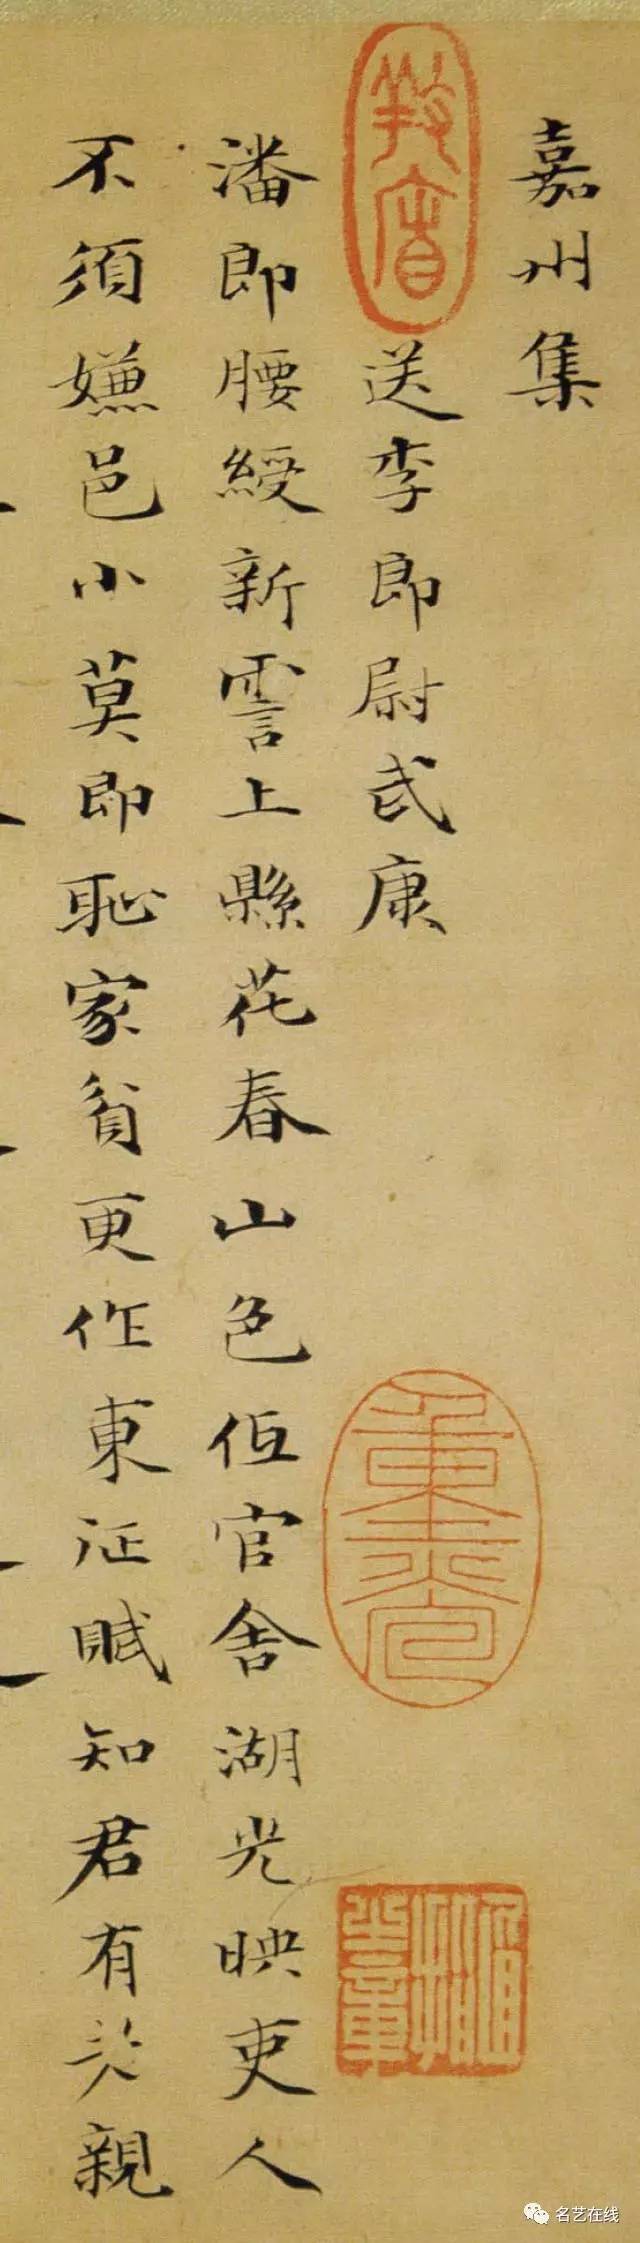 嘉州集
送李郎尉武康
潘郎腰綬新霅上縣花春山色低官舍湖光映吏人
不須嫌邑小莫即恥家貧更作東征賦知君有老親
名艺在线